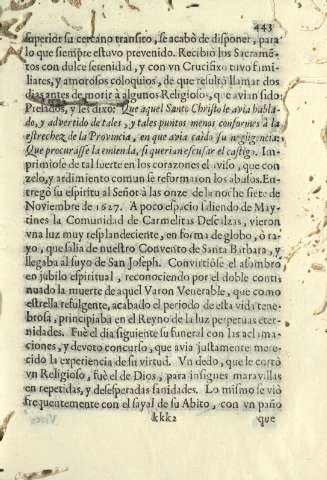 443
superior su cercano transito, se acabò de disponer, para
lo que siempre estuvo prevenido. Recibiò los Sacrame-
tos con dulce serenidad, y con vn Crucifixo tuvo fami-
liares, y amorosos coloquios, de que resultò llamar dos
dias antes de morir à algunos Religiosos, que avian sido
Prelados, y les dixo: Que aquel Santo Christo le avia habla-
do, y advertido de tales, y tales puntos menos conformes à la
estrechez de la Provincia, en que avia caido su negligencia:
Que procurasse la emienda, si querian escusar el castigo. Im-
primiose de tal suerte en los corazones el aviso, que con
zelo, y ardimiento comun se reformaron los abusos. En-
tregò su espiritu al Señor à las onze de la noche siete de
Noviembre de 1627. A poco espacio saliendo de May-
tines la Comunidad de Carmelitas Descalzas, vieron
vna luz muy resplandeciente, en forma de globo, ò ra-
yo, que salia de nuestro Convento de Santa Barbara, y
llegaba al suyo de San Joseph. Convirtiòse el assombro
en jubilo espiritual, reconociendo por el doble conti
nuado la muerte de aquel Varon Venerable, que como
estrella refulgente, acabado el periodo de esta vida tene-
brosa, principiaba en el Reyno de la luz perpetuas eter-
nidades. Fuè el dia siguiente su funeral con las aclama-
ciones, y devoto concurso, que avia justamente mere-
cido la experiencia de su virtud. Vn dedo, que le cortò
vn Religioso, fuè el de Dios, para insignes maravillas
en repetidas, y desesperadas sanidades. Lo mismo se viò
frequentemente con el sayal de su Abito, con vn paño
Kkk2 que